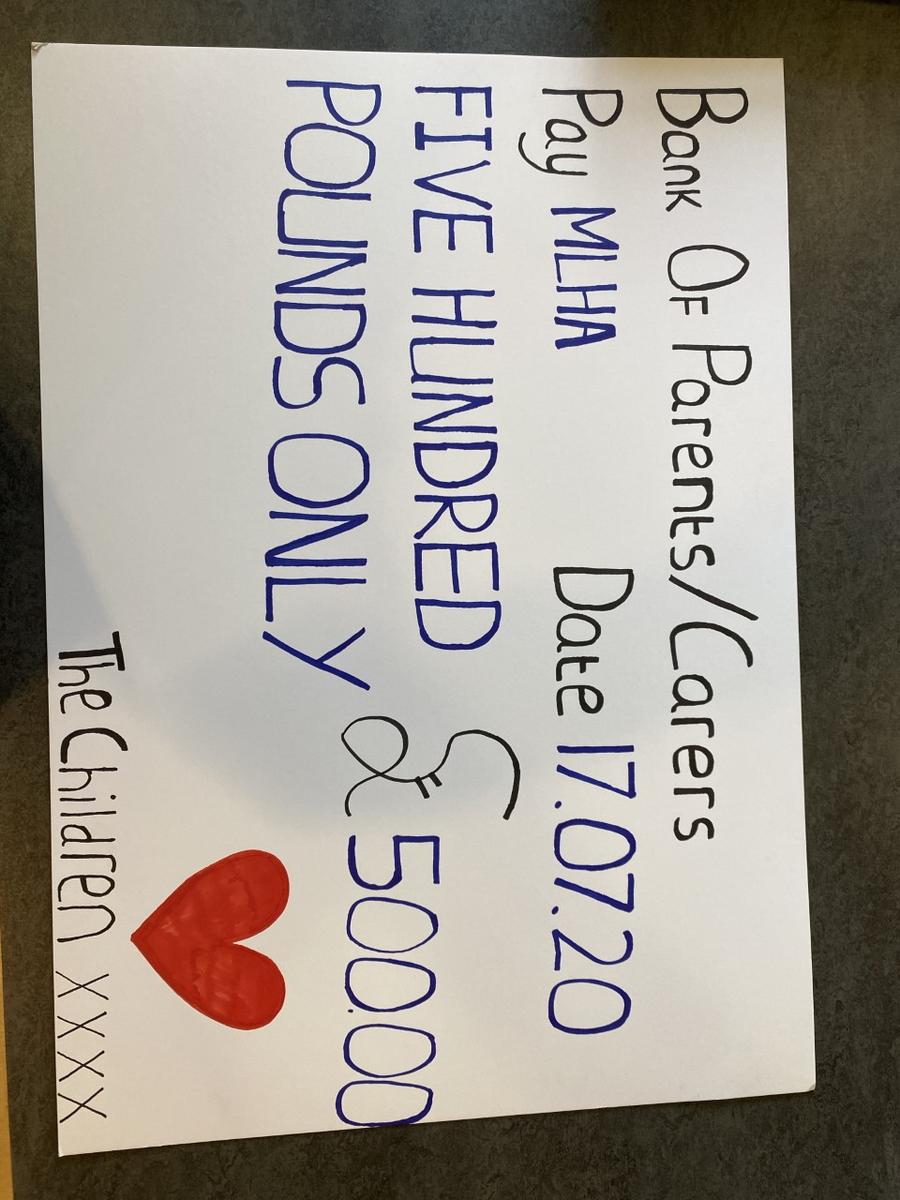 Bank Of Parents/Carers
Pay MLHA Date 17.07.20
FIVE HUNDRED
POUNDS ONLY £500.00
The Children xxxx